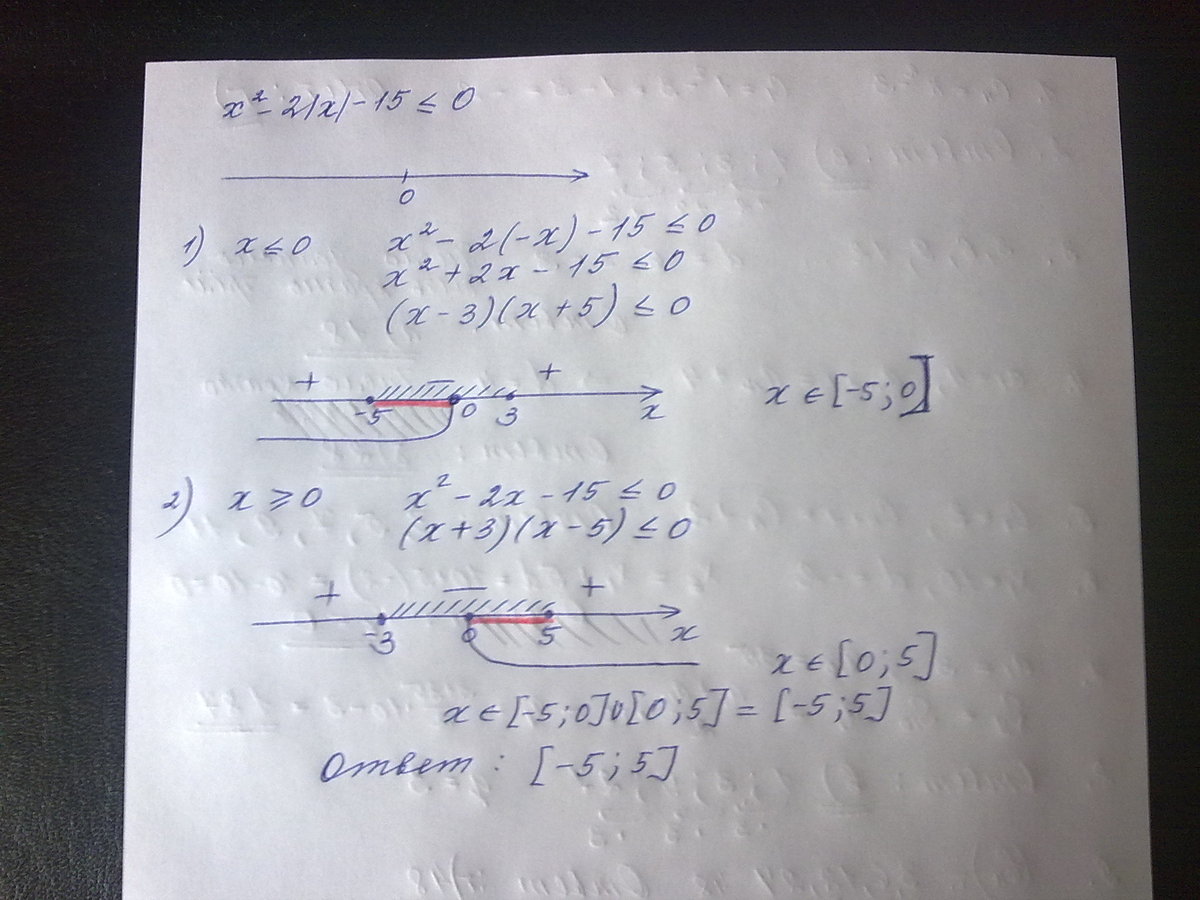 x² - 2|x| - 15 ≤ 0
0
1) x ≤ 0 x² - 2(-x) - 15 ≤ 0
x² + 2x - 15 ≤ 0
(x - 3)(x + 5) ≤ 0
+ — +
-5 0 3 x
x ∈ [-5; 0]
2) x ⩾ 0 x² - 2x - 15 ≤ 0
(x + 3)(x - 5) ≤ 0
+ — +
-3 0 5 x
x ∈ [0; 5]
x ∈ [-5; 0]∪[0; 5] = [-5; 5]
Ответ: [-5; 5]